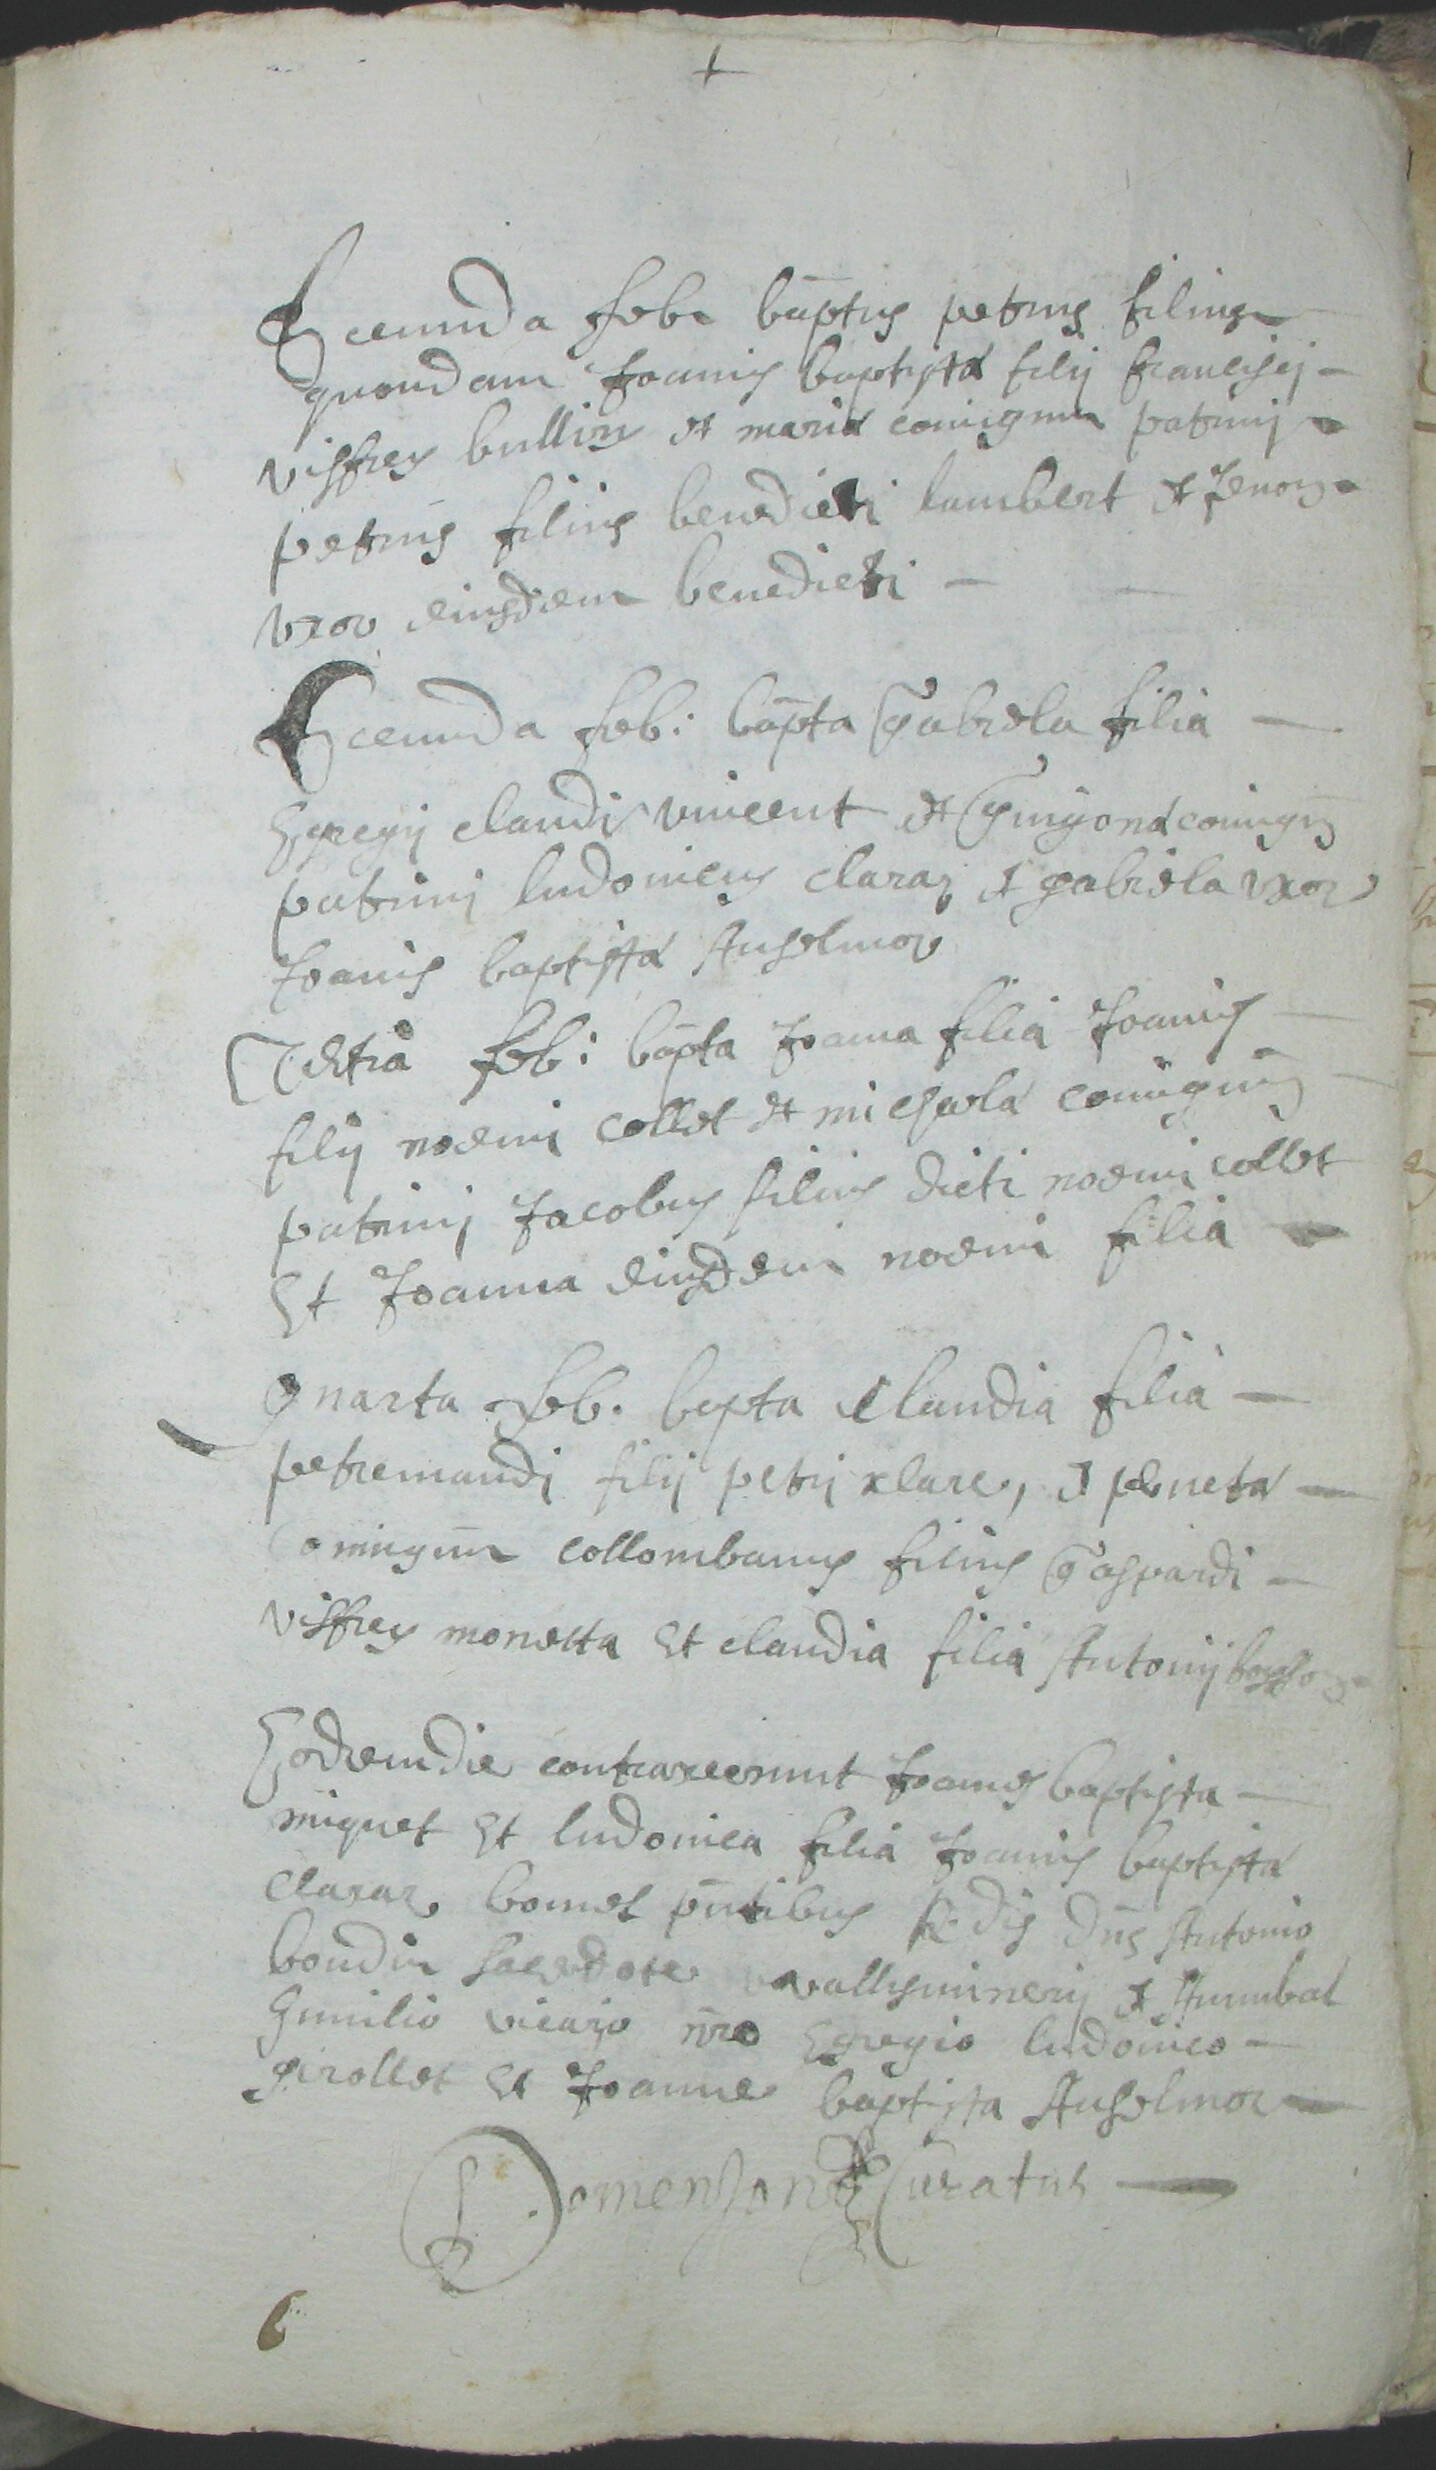 +
Secunda feb. baptus petrus filius
quondam Joanis baptistæ filij francisij
viffrey bullin et mariæ coniugum patrinj
petrus filius benedicti lambert et
uxor eiusdem benedicti
Secunda feb: bapta Gabriela filia
Egregij claudi vincent et Guigonæ coniugū
patrinj ludovicus claraz et gabriela uxor
Joanis baptistæ Anselmoz
Tertia feb: bapta Joana filia Joanis
filij noemi collet et michaela coniugum
patrinj Jacobus filius dicti noemi collet
Et Joanna eiusdem noemi filia
quarta feb. bapta claudia filia
petremandj filij petrj clare, et
coniugum collombanus filius Gaspardi
viffrey monetta Et claudia filia Antonij
Eodem die contraxerunt Joanes baptista
miquet Et ludovica filia Joanis baptistæ
Claraz bomel pntibus Rdis dnis Antonio
boudin sacerdote vallisminerij et Annibal
humilio vicario nro Egregio ludovico
girollet Et Joanne baptista Anselmoz
Domenjond Curatus
6